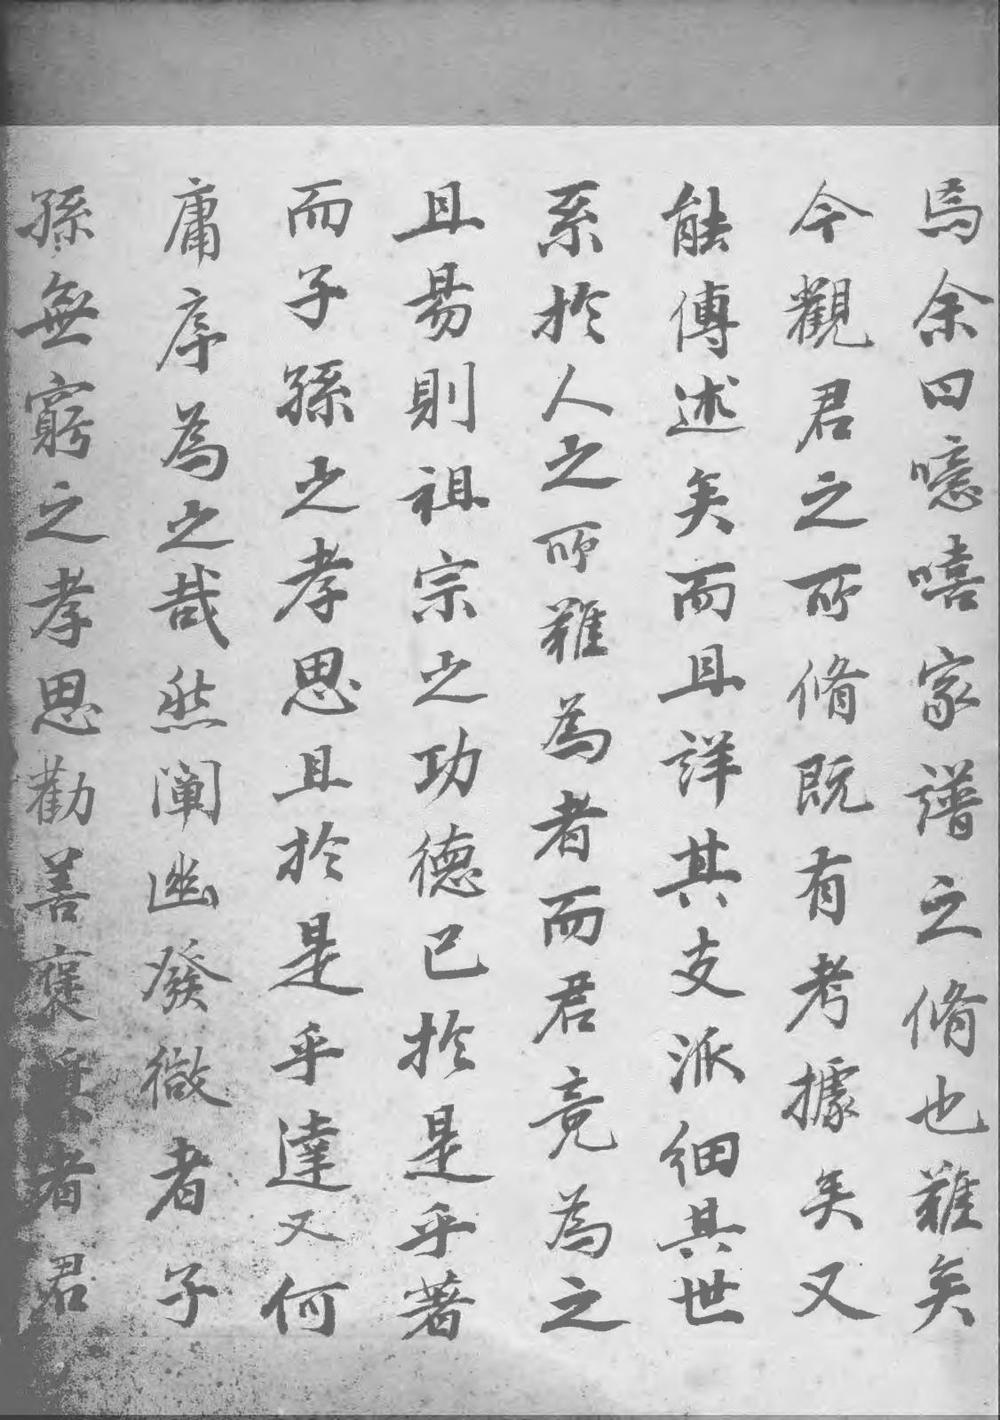 焉余曰噫嘻家譜之脩也難矣
今觀君之所脩既有考據矣又
能傳述矣而且詳其支派細其世
系於人之所難為者而君竟為之
且易則祖宗之功德已於是乎著
而子孫之孝思且於是乎達又何
庸序為之哉然闡幽發微者子
孫無窮之孝思勸善褒 者君